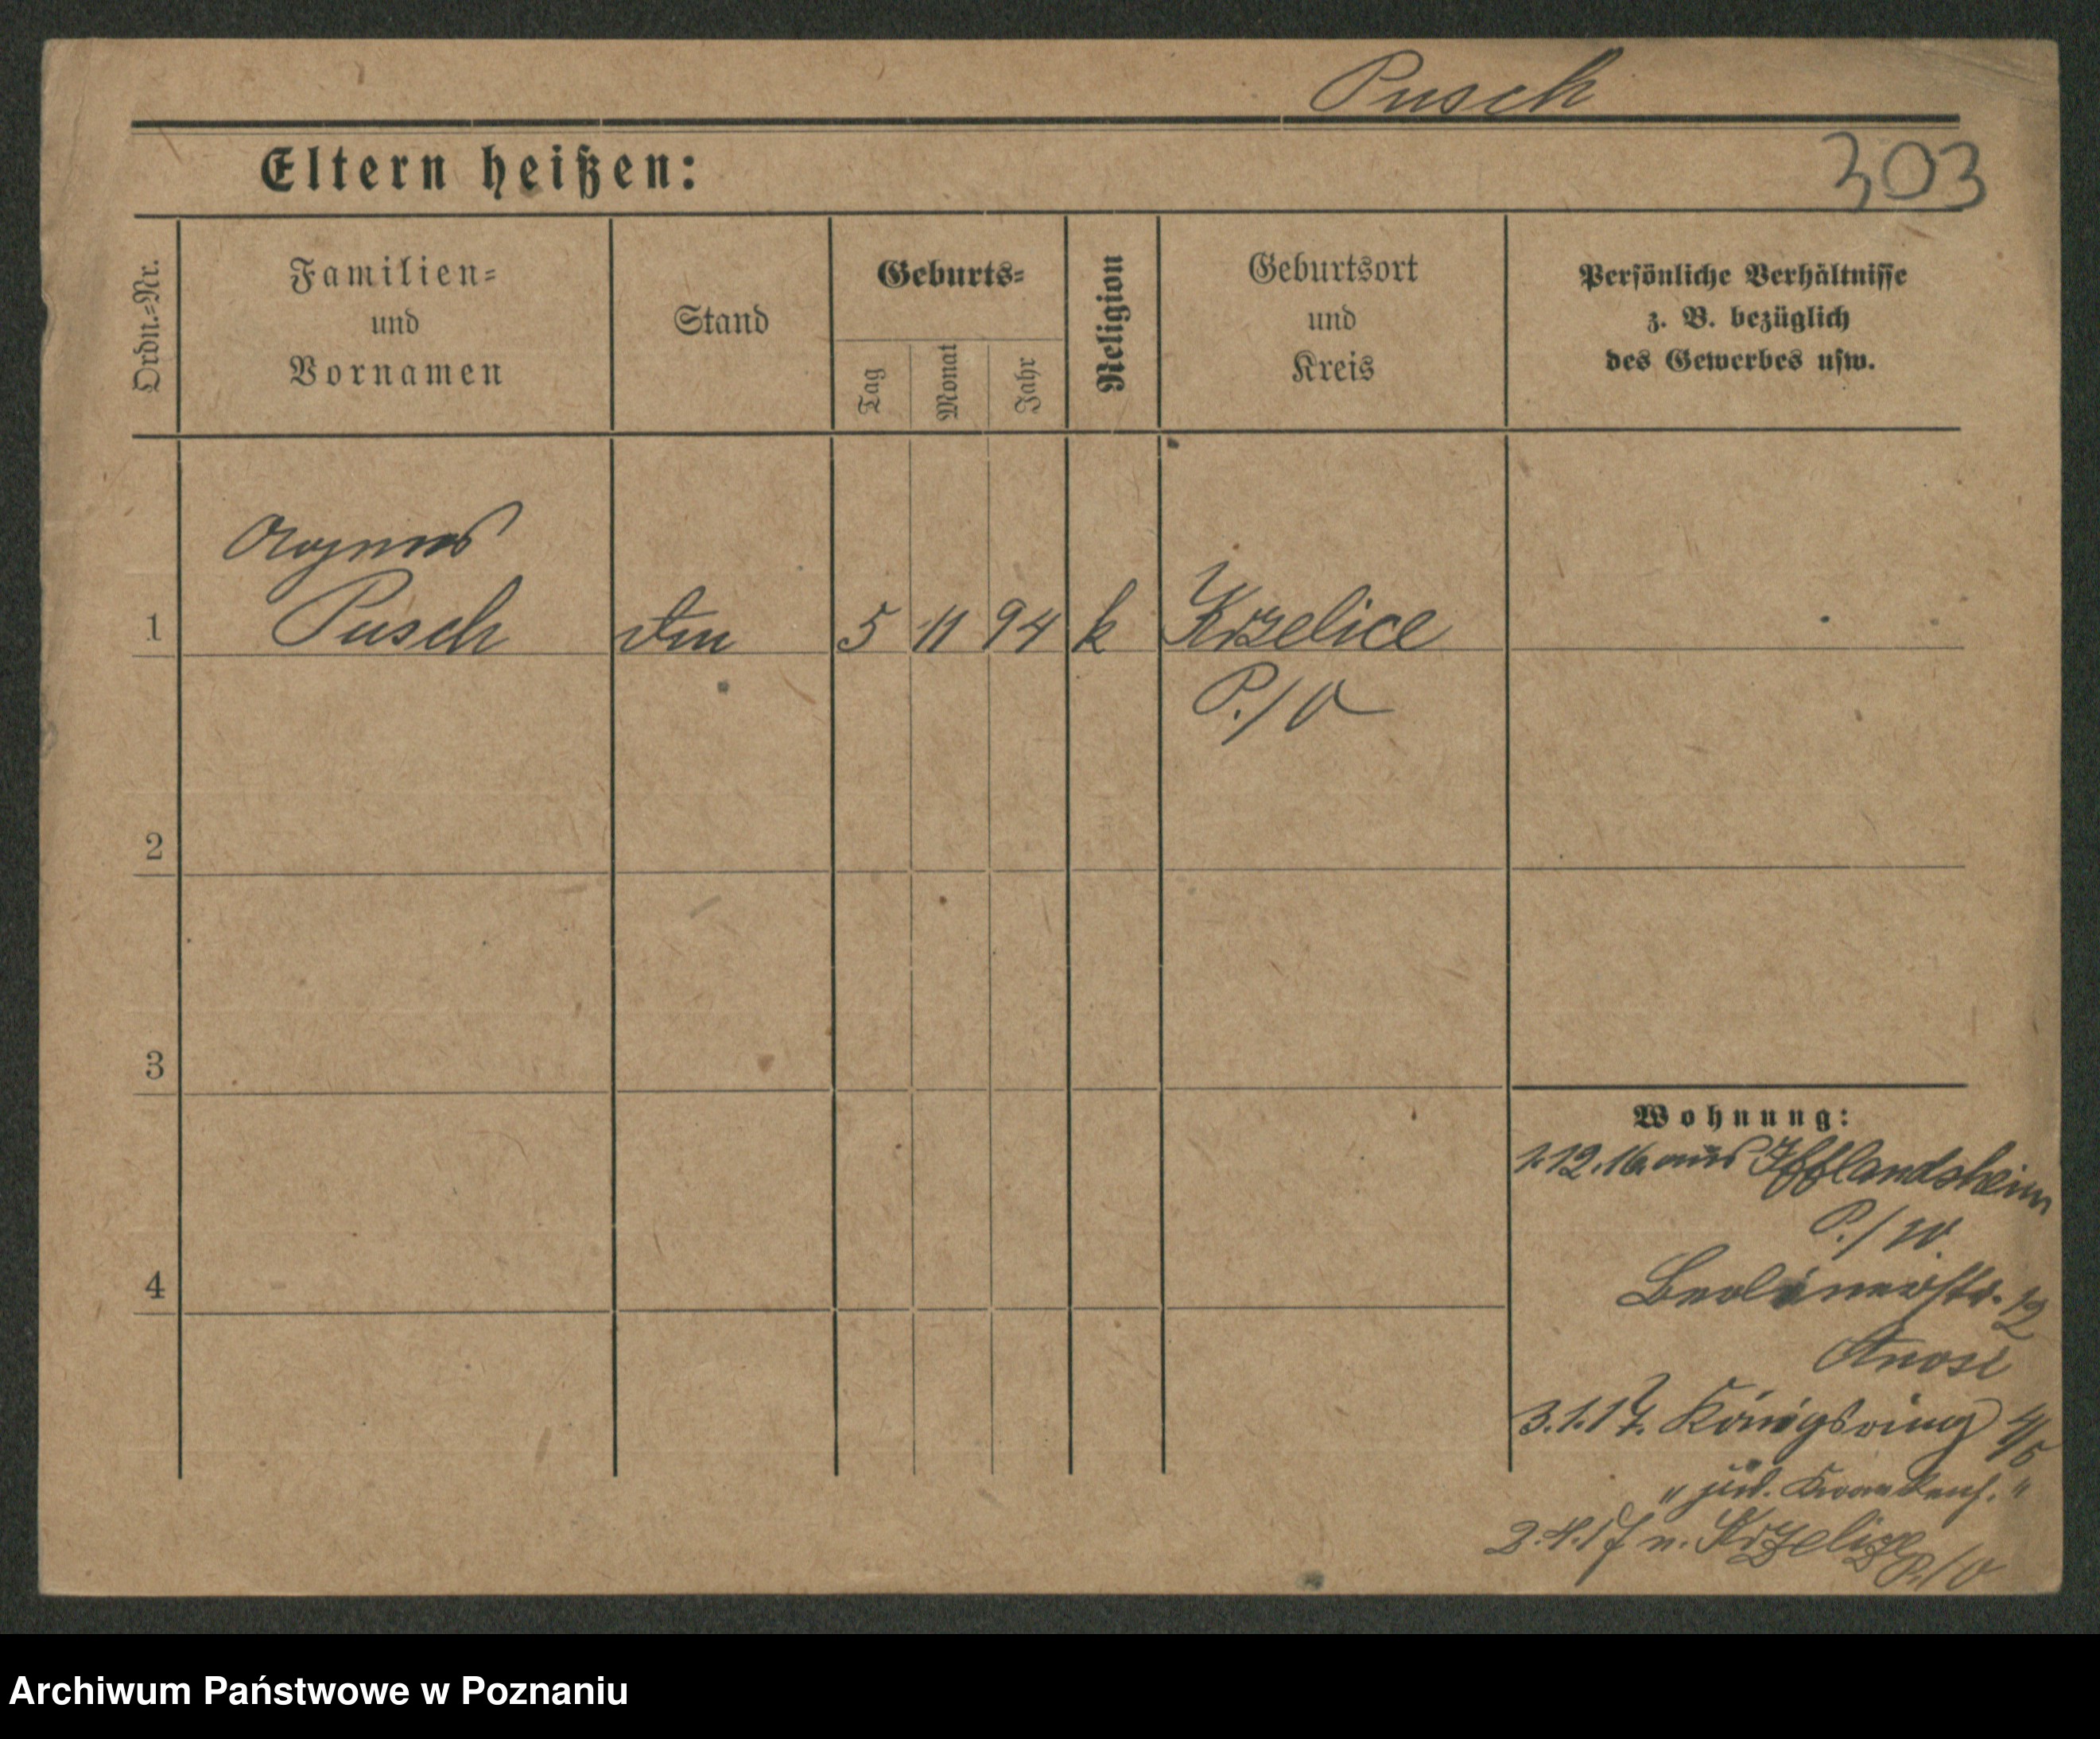 Pusch
Eltern heißen:
303
Ordn.-Nr.
Familien-
und
Vornamen
Stand
Geburts-
Tag
Monat
Jahr
Religion
Geburtsort
und
Kreis
Persönliche Verhältnisse
z. B. bezüglich
des Gewerbes usw.
1
Pusch
5 11 94 k Krzelice
P./O
2
3
4
Wohnung:
1.12.16 aus Ifflandsheim
P./W.
Berlinerstr. 12
3.1.17. Königsring 4/5
" jüd. Krankenh. "
2.4.17 n. Krzelize
P./O
Archiwum Państwowe w Poznaniu